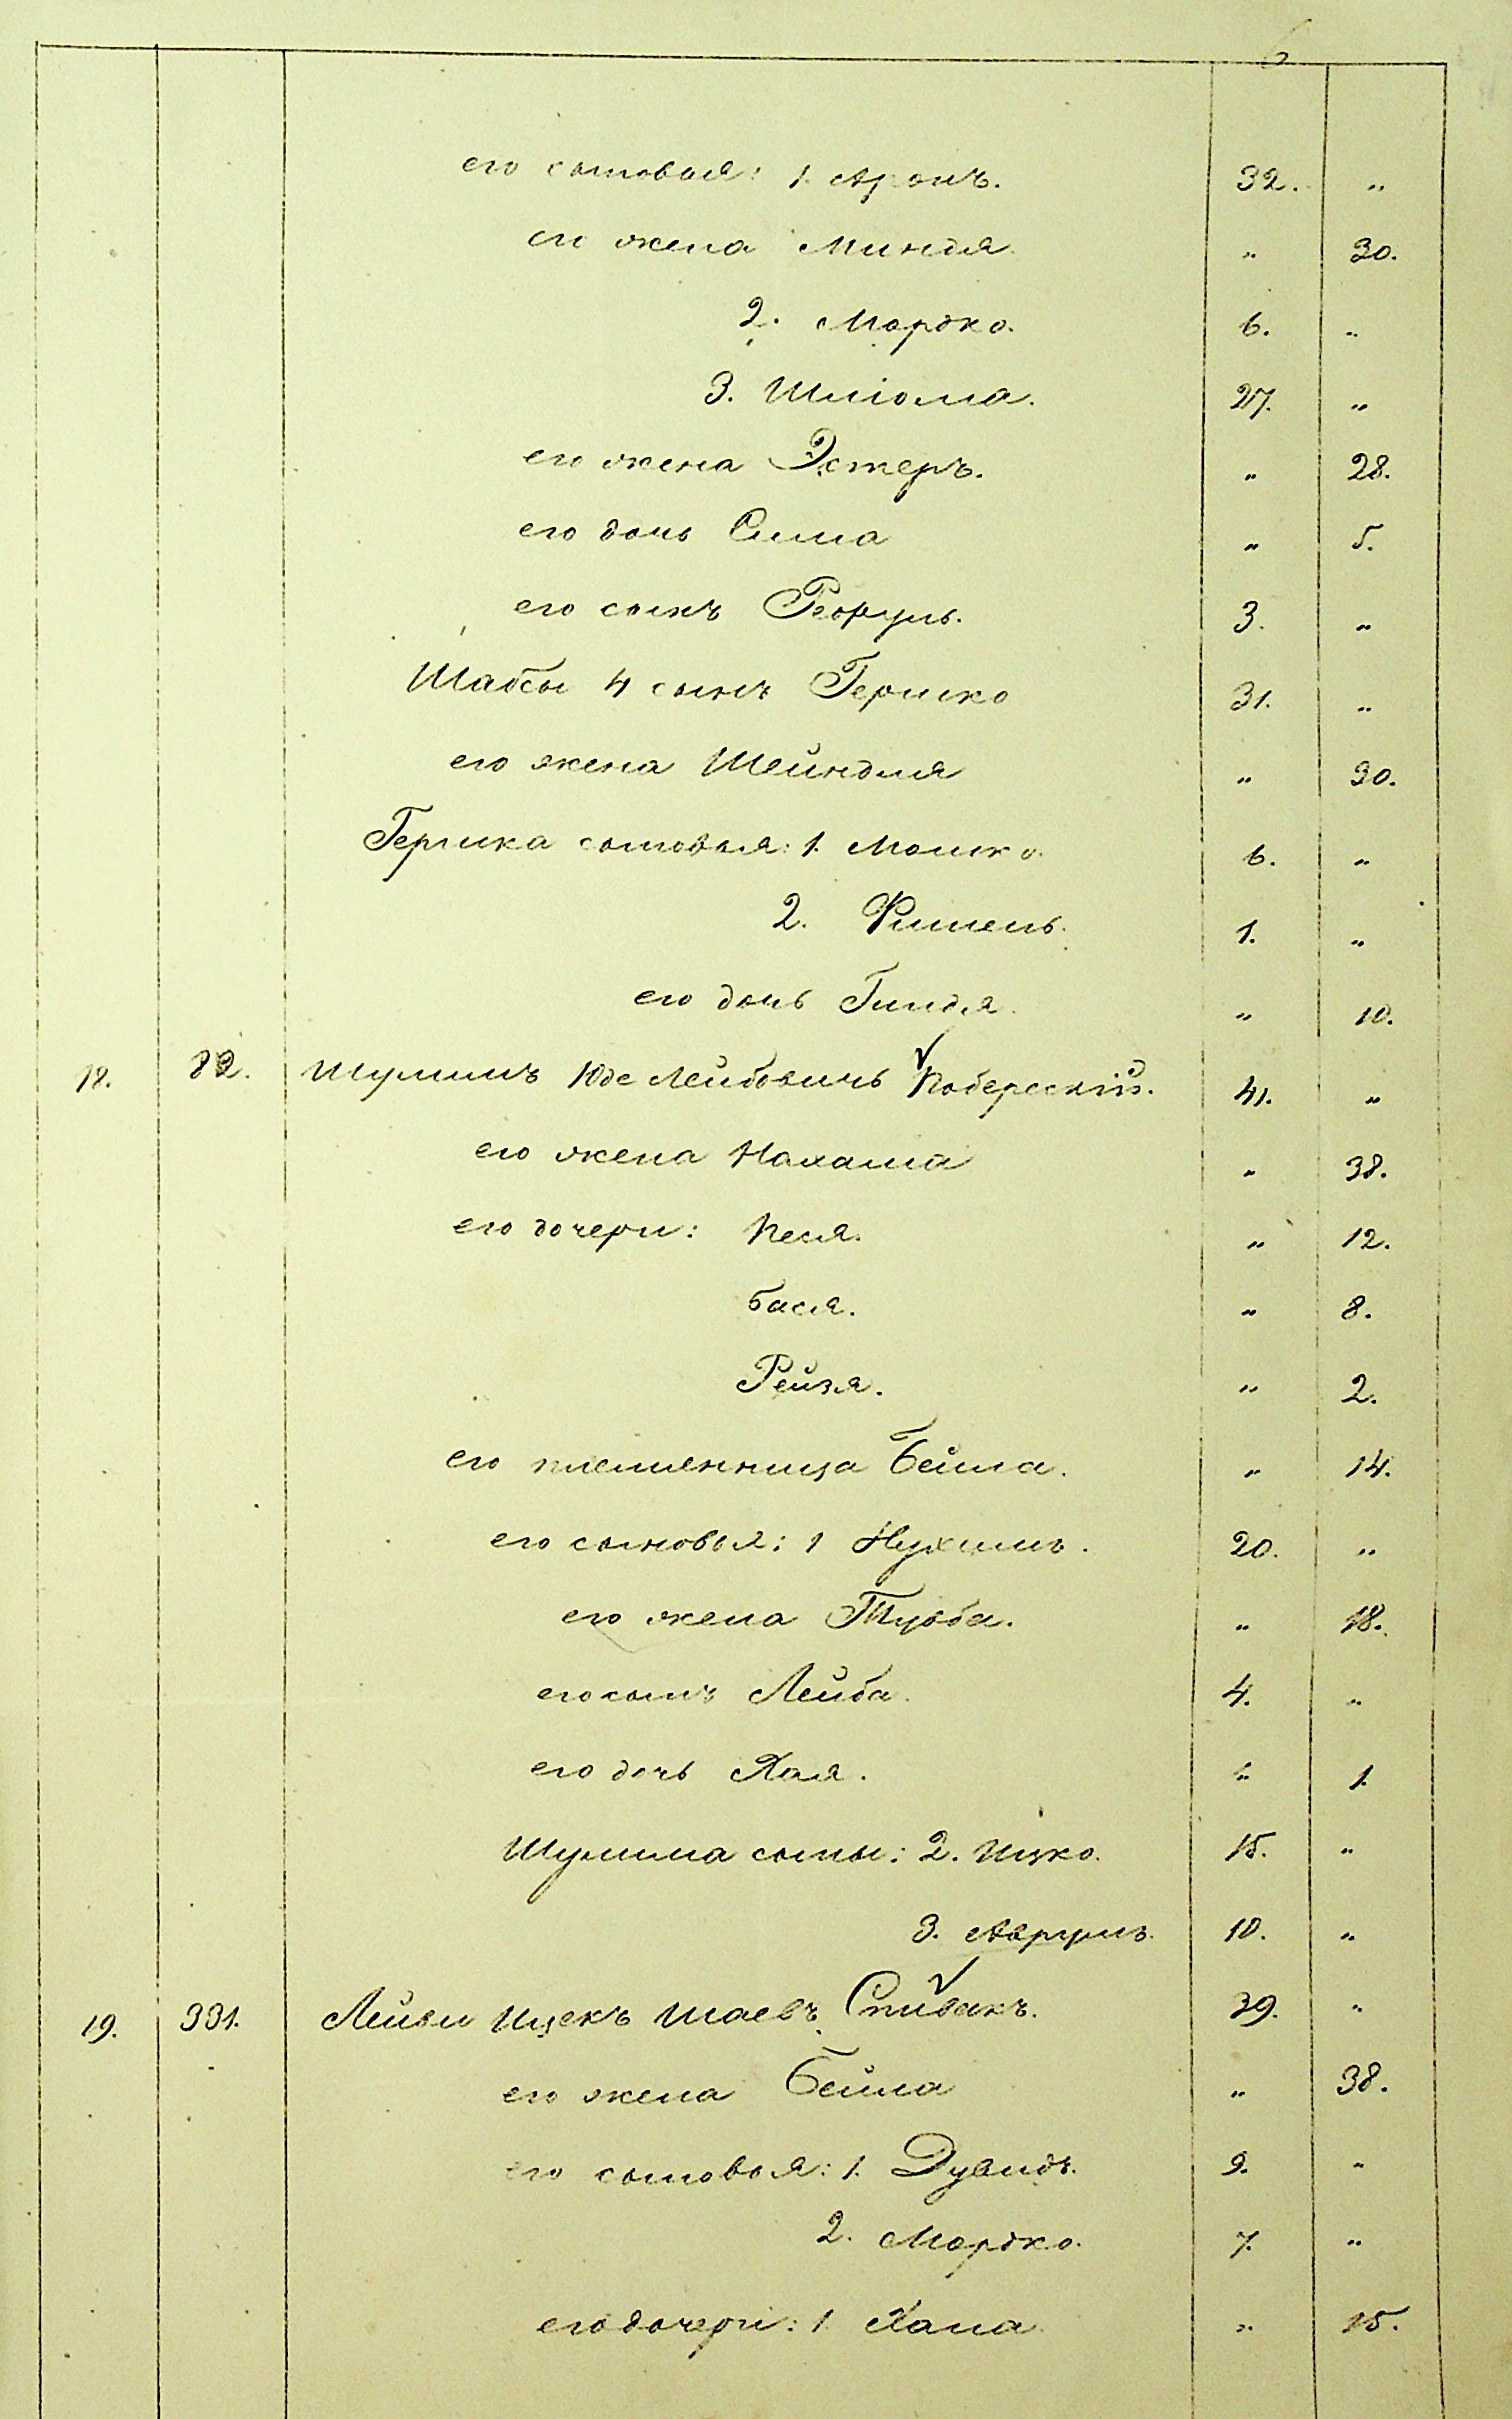 6
его сыновья: 1. Аронъ. 32. "
его жена Миндля " 30.
2. Мордко. 6. "
3. Шліома. 27. "
его жена Эстеръ. " 28.
его дочь Сима " 5.
его сынъ 3. "
Шабсы 4 сынъ Гершко 31. "
его жена Шейндля " 30.
Гершка сыновья: 1. Мошко. 6. "
2. Фишель. 1. "
его дочь Гиндля. " 10.
18. 82. Шулимъ Юде Лейбовичъ Поберескій. 41. "
его жена Нахама " 38.
его дочери: Песя. " 12.
Бася. " 8.
Рейзя. " 2.
его племенница Бейла. " 14.
его сыновья: 1 Нухимъ. 20. "
его жена Туба. " 18.
его сынъ Лейба. 4. "
его дочь Хая. " 1.
Шулима сыны: 2. Ицко. 15. "
3. Аврумъ. 10. "
19. 331. Лейви Ицекъ Шаевъ Спивакъ. 39. "
его жена Бейла " 38.
его сыновья: 1. Дувидъ. 9. "
2. Мордко. 7. "
его дочери: 1. Хана " 15.